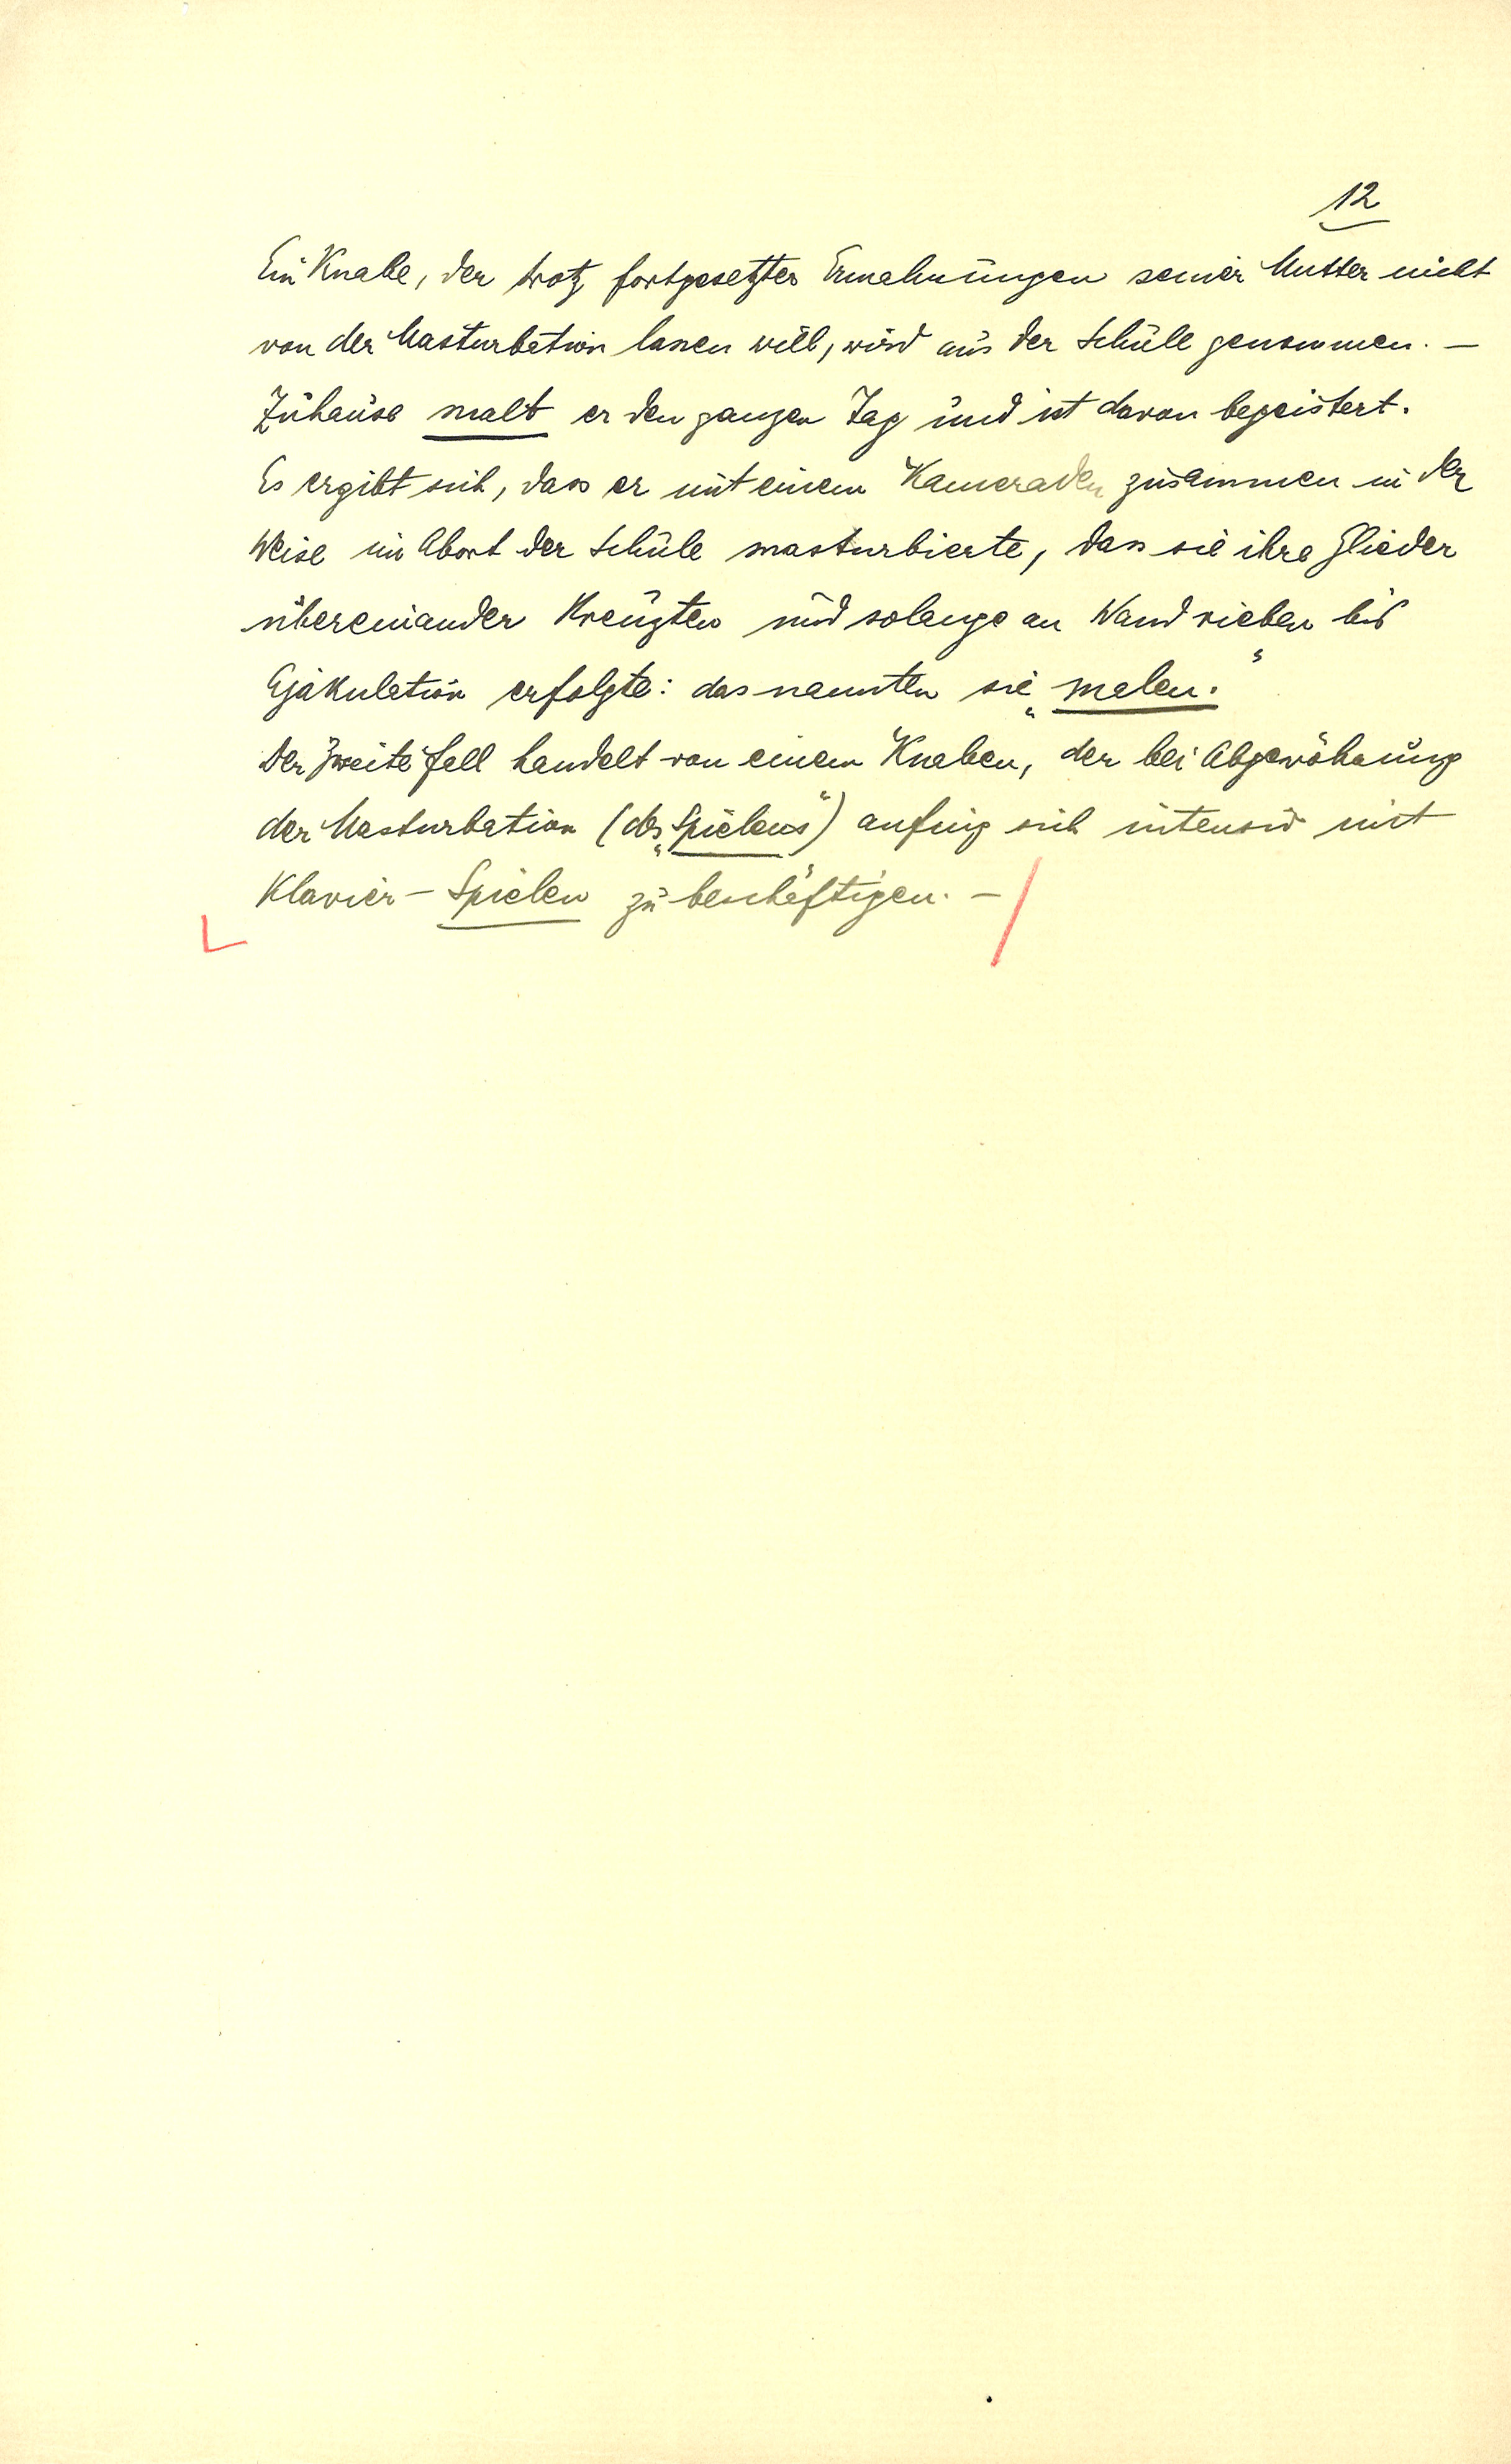 12
Ein Knabe, der trotz fortgesetzter Ermahnungen seiner Mutter nicht
von der Masturbation lassen will, wird aus der Schule genommen. –
Zuhause malt er den ganzen Tag und ist davon begeistert.
Es ergibt sich, dass er mit einem Kameraden zusammen in der
Weise im Abort der Schule masturbierte, dass sie ihre Glieder
übereinander kreuzten und solange an Wand rieben bis
Ejakulation erfolgte: das nannten sie „malen.“
Der zweite Fall handelt von einem Knaben, der bei Abgewöhnung
der Masturbation (des „Spielens“) anfing sich intensiv mit
Klavier-Spielen zu beschäftigen. –